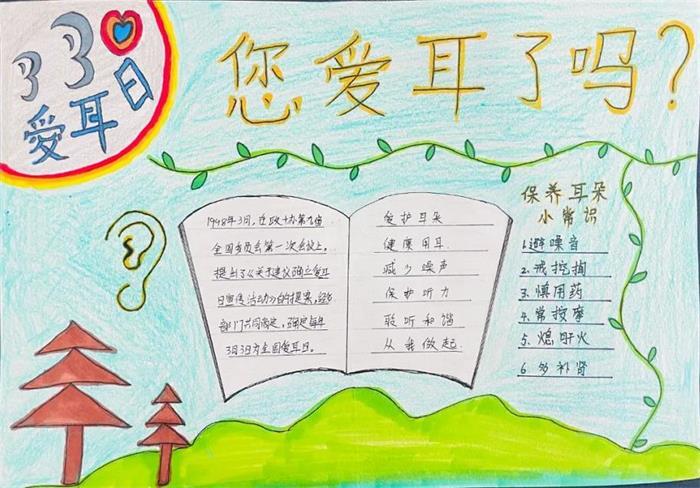 33
爱耳日
您爱耳了吗?
1998年3月,在政协第九届
全国委员会第一次会议上,
提出了《关于建议确立爱耳
日宣传活动》的提案,经
部门共同商定,确定每年
3月3日为全国爱耳日。
爱护耳朵
健康用耳
减少噪声
保护听力
聆听和谐
从我做起
保养耳朵
小常识
1.避噪音
2.戒挖掏
3.慎用药
4.常按摩
5.熄肝火
6.多补肾